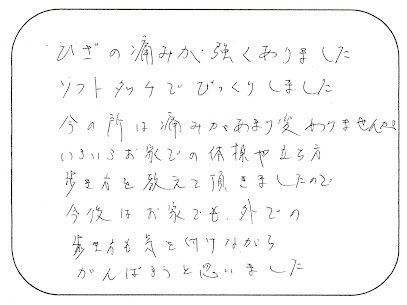 ひざの痛みが強くありました
ソフトタッチでびっくりしました
今の所は痛みがあまり変わりませんが
いろいろお家での体操や立ち方
歩き方を教えて頂きましたので
今後はお家でも、外での
歩き方も気を付けながら
がんばろうと思いました